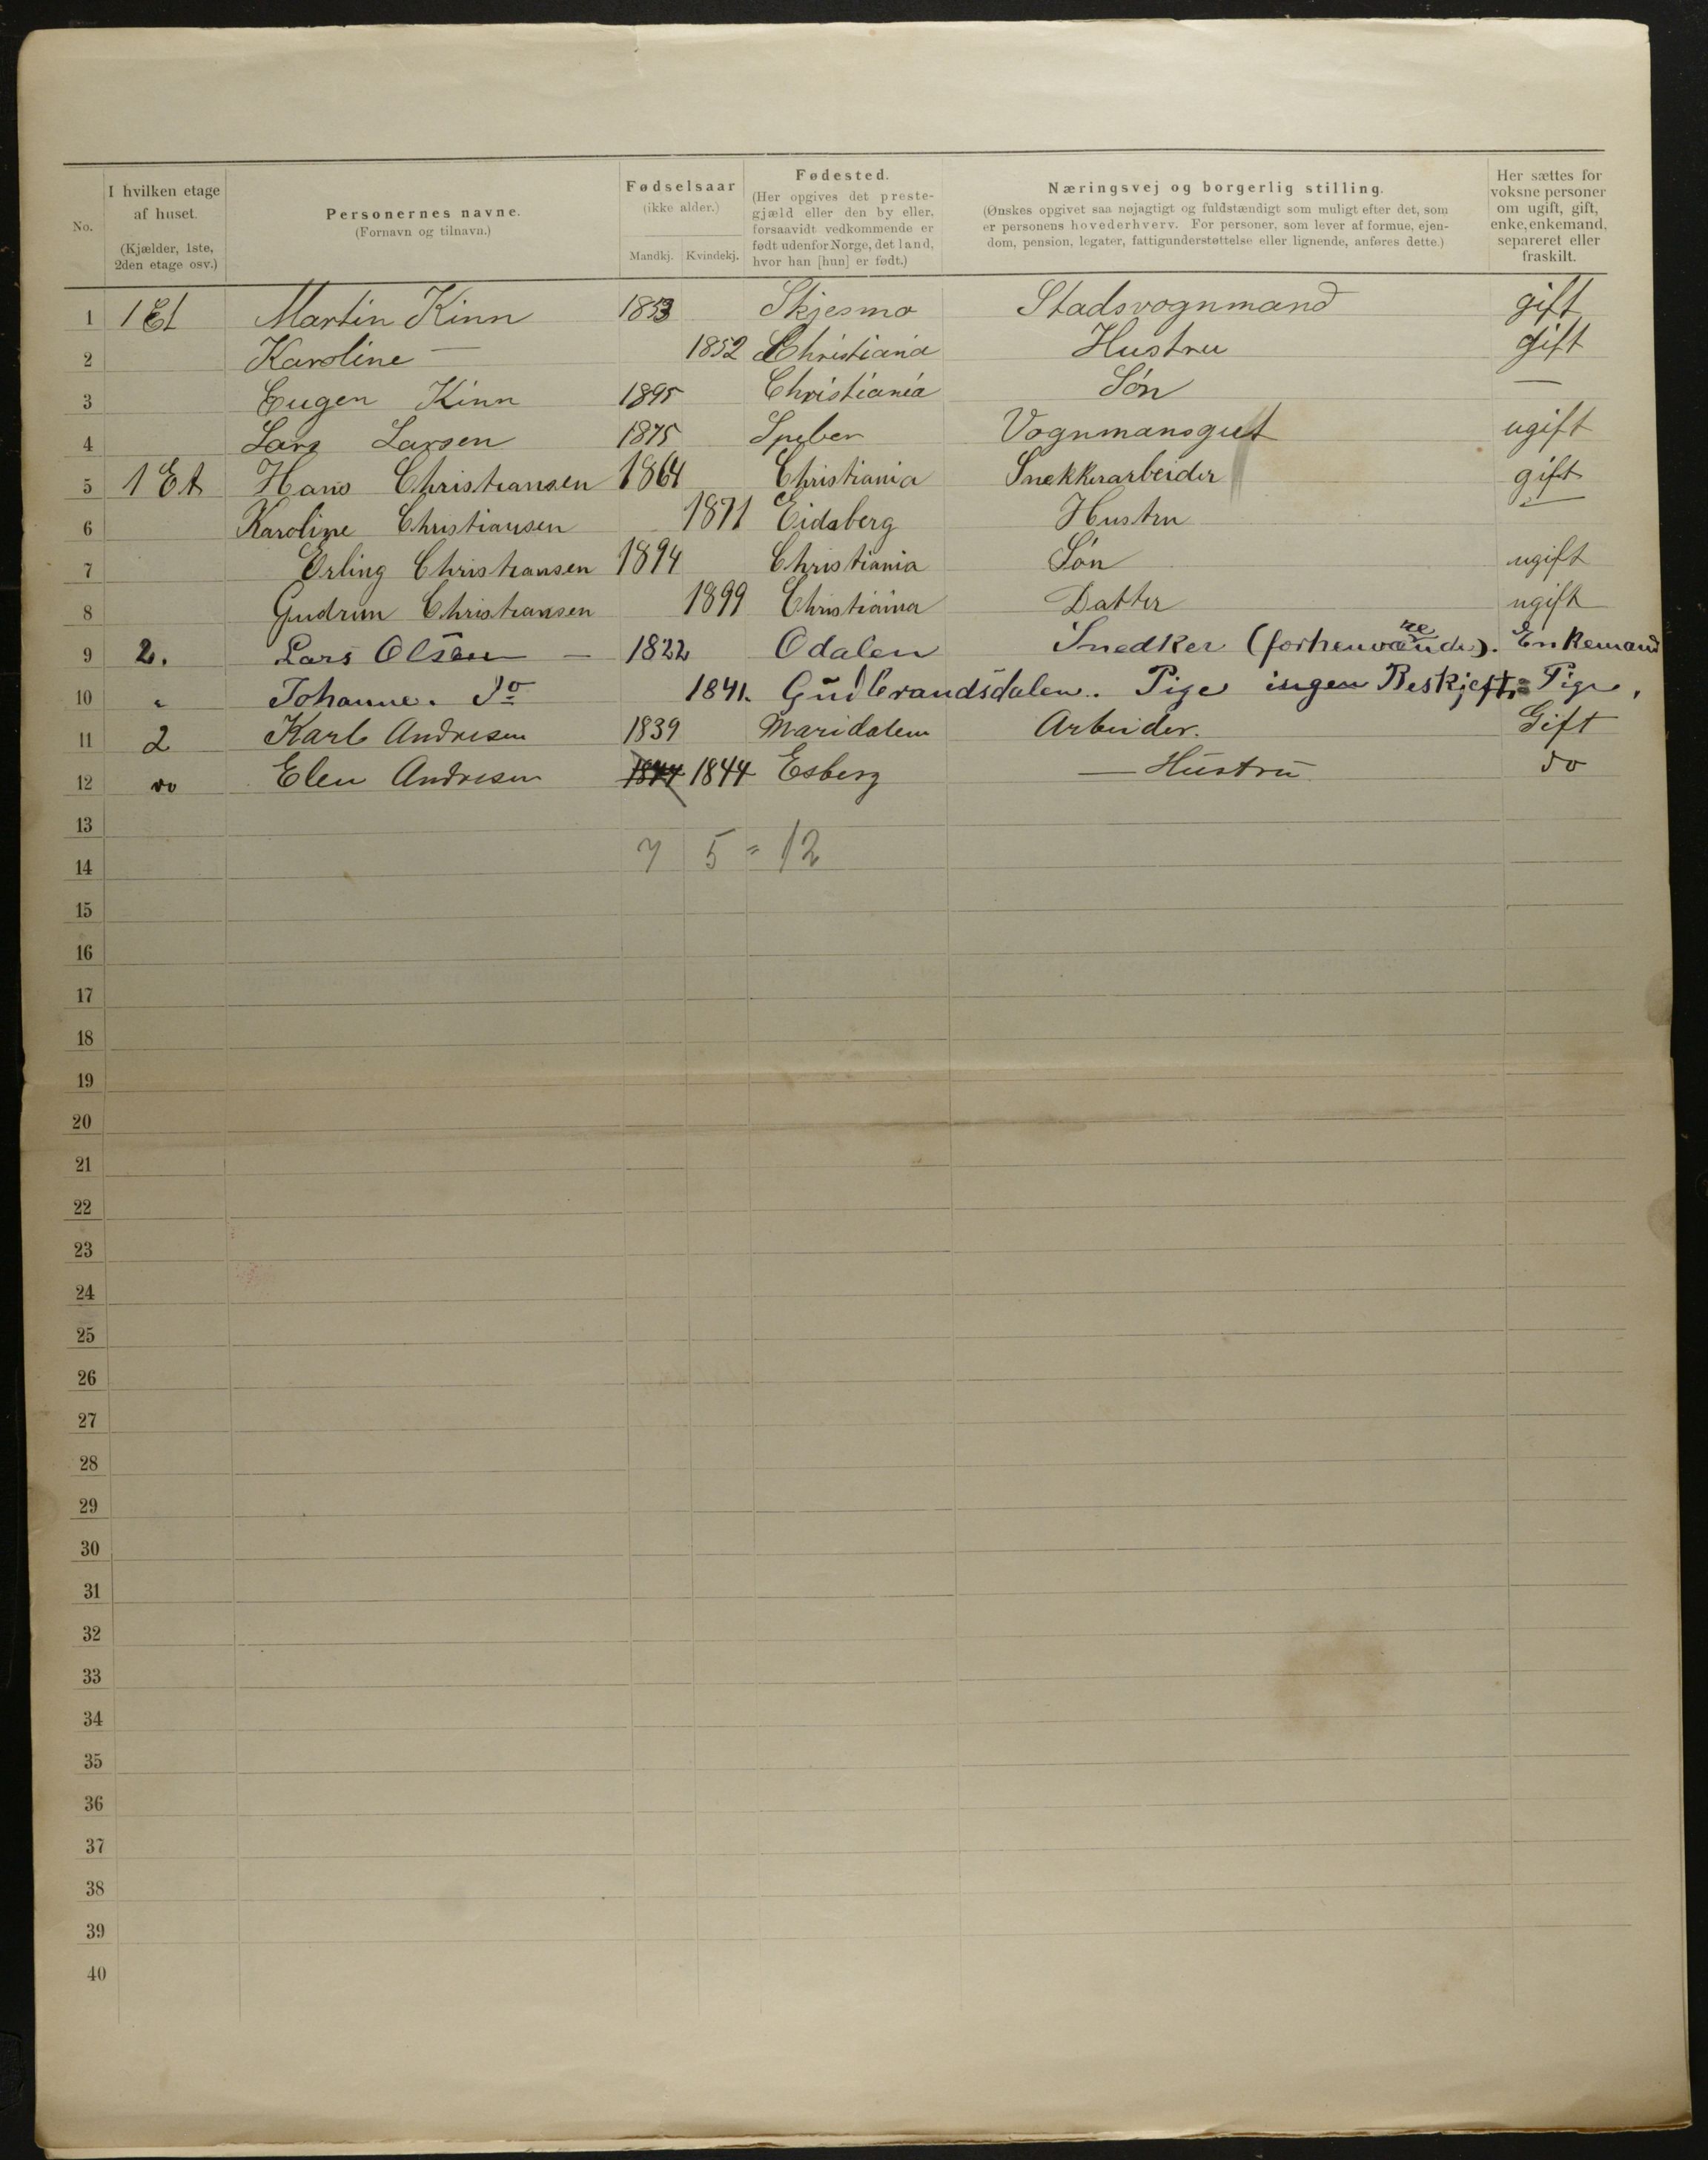 No.
I hvilken etage af huset.
(Kjælder, 1ste, 2den etage osv.)
Personernes navne.
(Fornavn og tilnavn.)
Fødselsaar
(ikke alder.)
Mandkj. Kvindekj.
Fødested.
(Her opgives det preste-
gjæld eller den by eller,
forsaavidt vedkommende er
født udenfor Norge, det land,
hvor han [hun] er født.)
Næringsvej og borgerlig stilling.
(Ønskes opgivet saa nøjagtigt og fuldstændigt som muligt efter det, som
er personens hovederhverv. For personer, som lever af formue, ejen-
dom, pension, legater, fattigunderstøttelse eller lignende, anføres dette.)
Her sættes for
voksne personer
om ugift, gift,
enke, enkemand,
separeret eller
fraskilt.
1 1 Et Martin Kinn 1853 Skjesmo Stadsvognmand gift
2 Karoline — 1852 Christiania Hustru gift
3 Eugen Kinn 1895 Christiania Søn —
4 Lars Larsen 1875 Vognmansgut ugift
5 1 Et Hans Christiansen 1864 Christiania Snekkerarbeider gift
6 Karoline Christiansen 1871 Eidsberg Hustru
7 Erling Christiansen 1894 Christiania Søn ugift
8 Gudrun Christiansen 1899 Christiania Datter ugift
9 2. Lars Olsen — 1822 Odalen Snedker (forhenværende). Enkemand
10 " Johanne. Do 1841. Gudbrandsdalen. Pige ingen Beskjeft. = Pige.
11 2 Karl Andresen 1839 Maridalen Arbeider. Gift
12 do Elen Andresen 1844 1844 Esberg — Hustru do
13
7 5 = 12
14
15
16
17
18
19
20
21
22
23
24
25
26
27
28
29
30
31
32
33
34
35
36
37
38
39
40